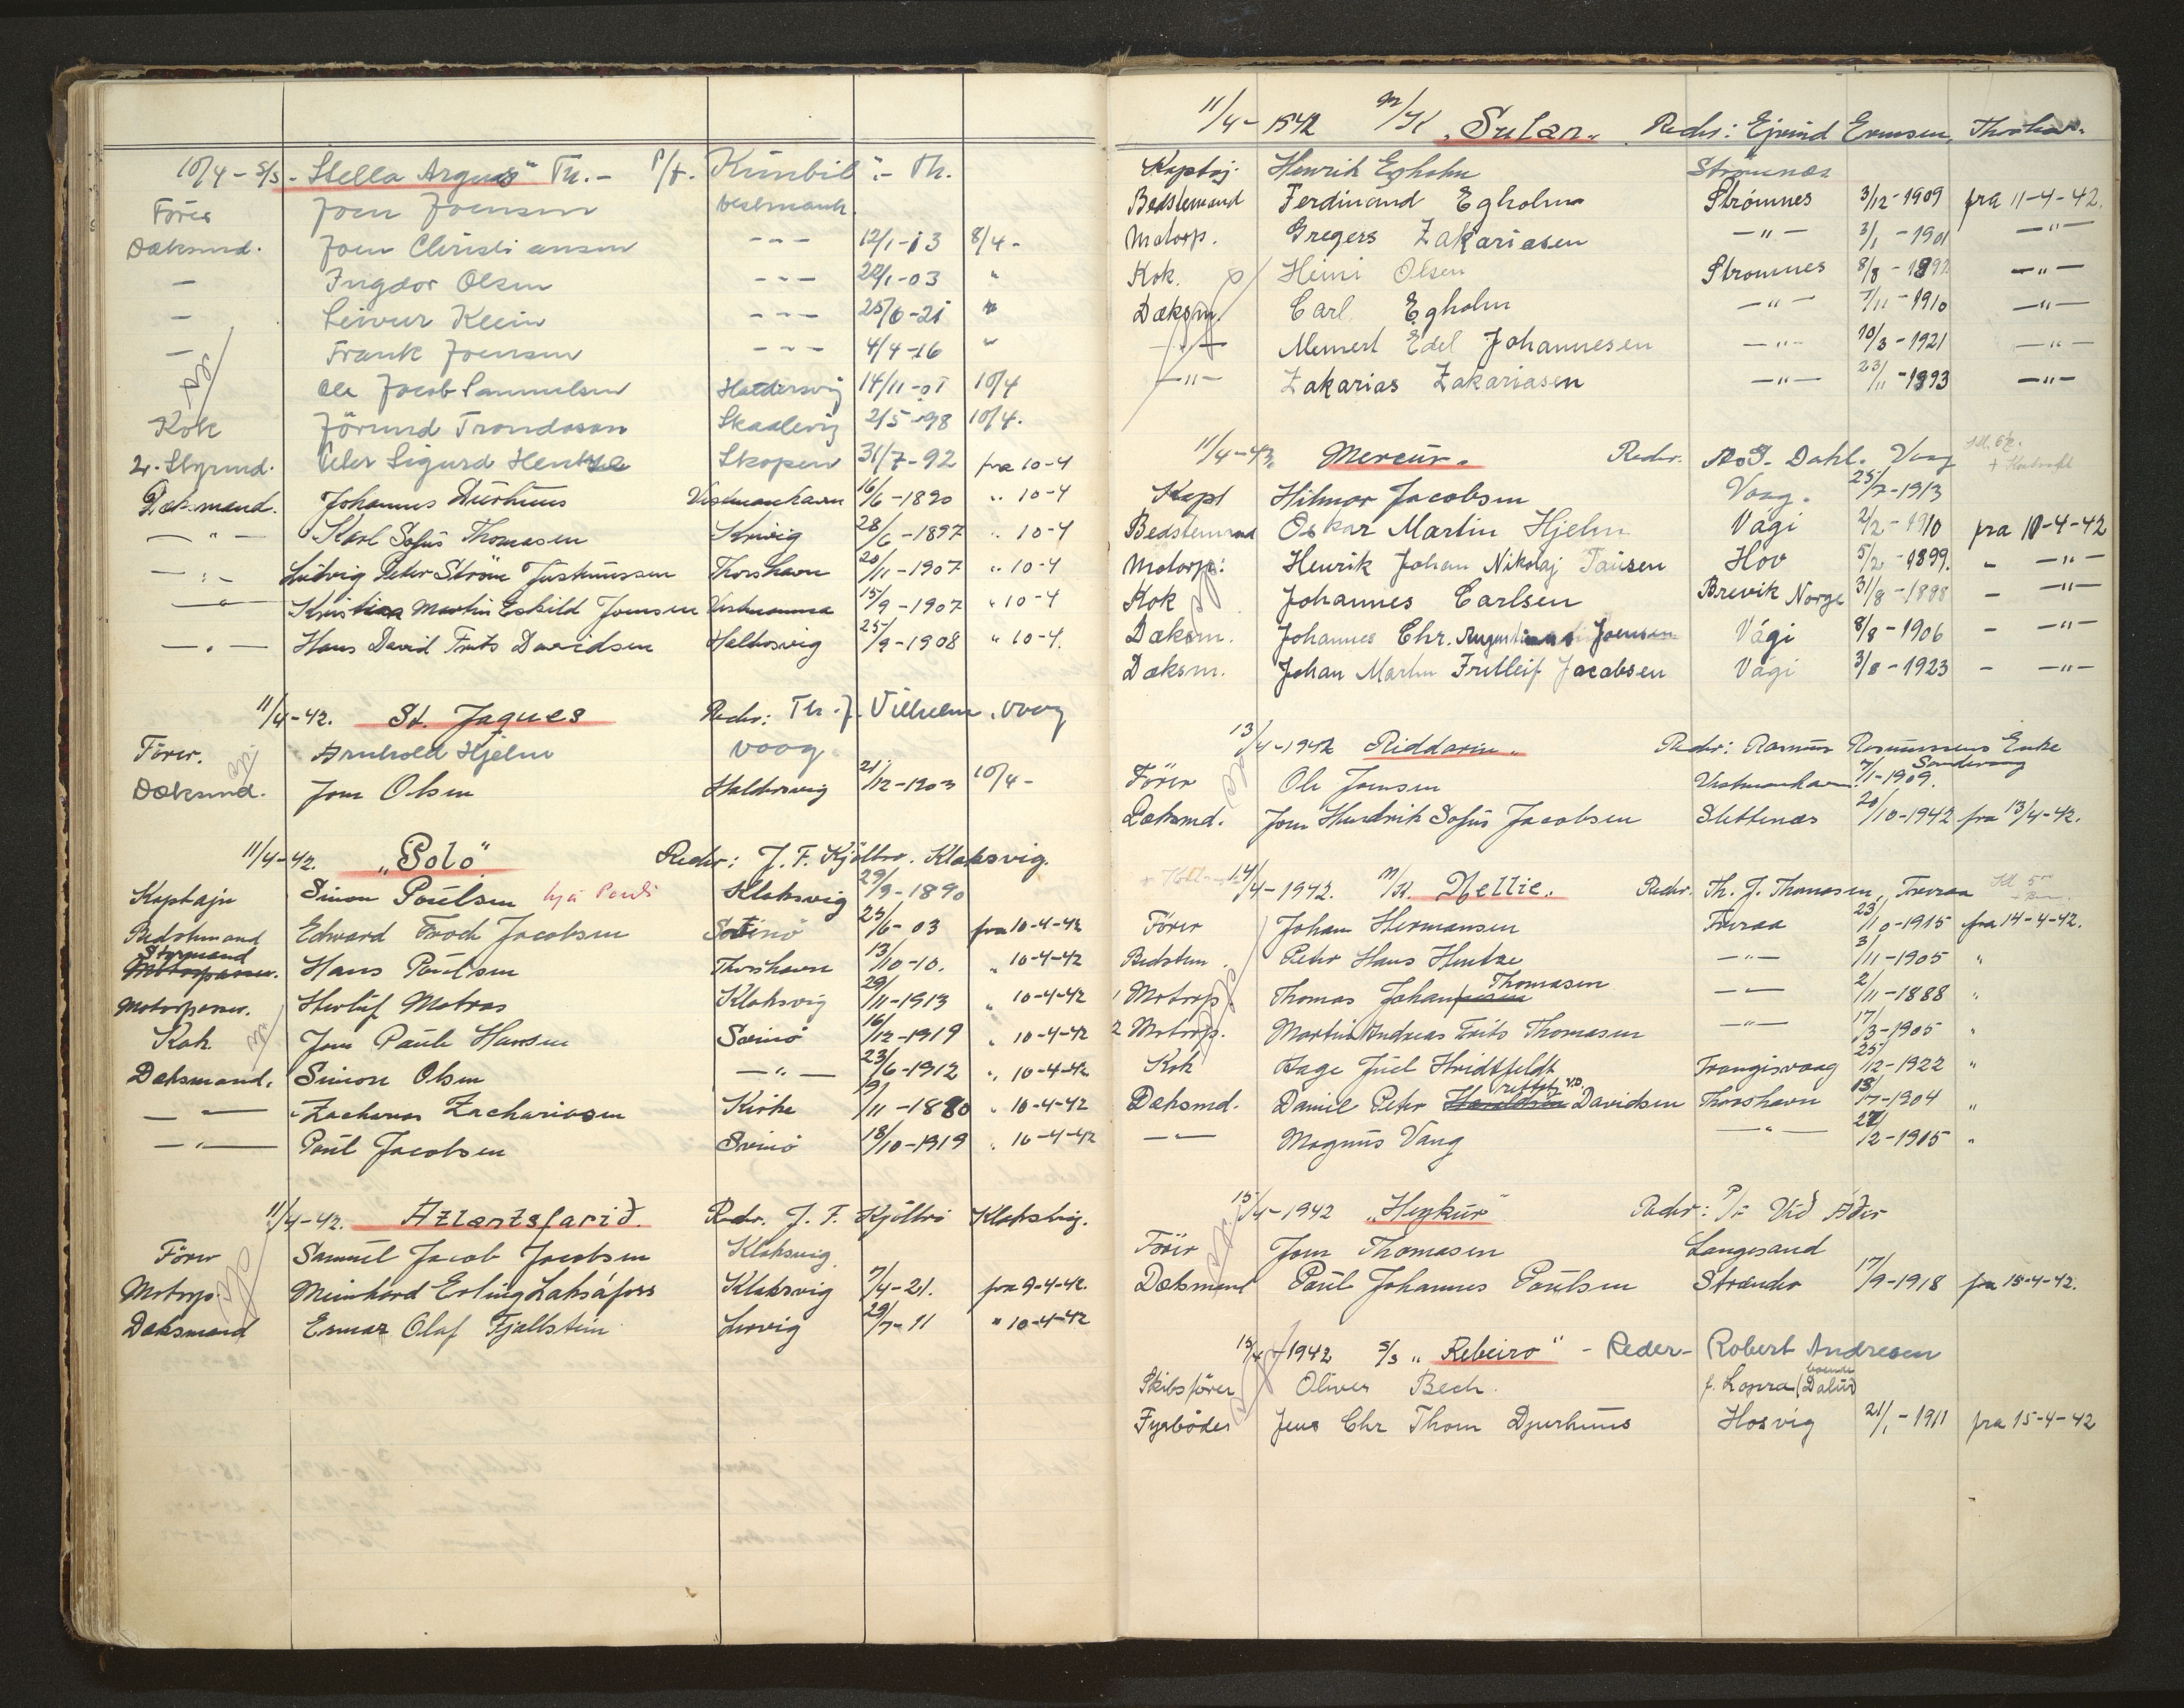 10/4 - S/S - Stella Argus" Th. - P/f. Kúnbil". - Th.
Förer Joen Joensen Vestmanh.
Dæksmd. Joen Christiansen - - - 12/1-13 8/4 -
— Ingdor Olsen - - - 22/1-03 "
— Leivur Klein - - - 25/6-21 "
— Frank Joensen - - - 4/4-16 "
Ole Jacob Samuelsen Haldersvig 14/11-01 10/4
Kok Jörund Trondesen Skaalevig 2/5-98 10/4.
2. Styrmd. Peter Sigurd Hentze Skopen 31/7-92 fra 10-4
Dæksmand. Johannes Dúrhuus Vestmanhavn 16/6-1890 " 10-4
— " — Karl Sofus Thomasen 28/6-1897 " 10-4
— " — Ludvig Peter Ström Justinussen Thorshavn 20/11-1907 " 10-4
— " — Kristian Martin Eskild Joensen Vestmanna 15/9-1907 " 10-4
— " — Hans David Frits Davidsen Haldersvig 25/9-1908 " 10-4.
11/4-42. St. Jaques Reder: Th. J. Vilhelm, Vaag
Förer. Arnhold Hjelm Vaag
Dæksmd. Jon Olsen Haldersvig 21/12-1903 10/4 -
11/4-42. "Polo" Reder: J. F. Kjölbro. Klaksvig.
Kaptajn Simon Poulsen hjá Poul Klaksvig 29/9-1890
Bedstemand Edward Jacobsen Svinö 23/6-03 fra 10-4-42
Styrmand Motorpasser. Hans Poulsen Thorshavn 13/10-10. " 10-4-42
Motorpasser. Herluf Matras Klaksvig 29/11-1913 " 10-4-42
Kok Jon Paule Hansen Svinö 16/12-1919 " 10-4-42
Dæksmand. Simon Olsen — " — 23/6-1912 " 10-4-42
— " — Zacharias Zachariasen Kirke 19/11-1880 " 10-4-42
— " — Poul Jacobsen Svinö 18/10-1919 " 10-4-42
11/4-42. Atlantsfarið. Reder. J. F. Kjölbro Klaksvig.
Förer Samuel Jacob Jacobsen Klaksvig
Motorp. Meinhard Erling Laksáfoss Klaksvig 7/4-21. fra 9-4-42.
Dæksmand Ermar Olaf Fjallstein Lervig 29/7-11 " 10-4-42
11/4-1942 M/K "Sulan" Reder: Ejvind Ennsen, Thorshavn
Kaptaj. Henrik Egholm Strömnæs
Bedstemand Ferdinand Egholm Strömnes 3/12-1909 fra 11-4-42.
Motorp. Gregers Zakariasen — " — 3/1-1901 — " —
Kok. Heini Olsen Strömnes 8/8-1892 — " —
Dæksm. Carl Egholm — " — 7/11-1910 — " —
— " — Meinert Edel Johannesen — " — 10/3-1921 — " —
— " — Zakarias Zakariasen — " — 23/11-1893 — " —
11/4-42. Mercur. Reder. A&S. Dahl. Vaag
Kapt Hilmar Jacobsen Vaag. 25/7-1913
Bedstemand Oskar Martin Hjelm Vági 2/2-1910 fra 10-4-42
Motorp: Henrik Johan Nikolaj Tausen Hov 5/2-1899. - — " —
Kok Johannes Carlsen Brevik Norge 31/8-1898 - — " —
Dæksm. Johannes Chr. Joensen Vági 8/8-1906 - — " —
Dæksm. Johan Martin Fritleif Jacobsen Vági 3/8-1923 - — " —
13/4-1942 Riddarin. Reder: Rasmus Rasmussens Enke Sandevaag
Förer Ole Joensen Vestmanhavn. 7/1-1909.
Dæksmd. Jon Hendrik Sofus Jacobsen Slettenæs 20/10-1942 fra 13/4-42.
14/4-1942. M/K. Nellie. Reder. Th. J. Thomasen, Tveraa
Förer Johan Hermansen Tveraa 23/10-1915 fra 14-4-42.
Bedstem. Peter Hans Hentze — " — 3/11-1905 "
1 Motorp. Thomas Johan Thomasen — " — 2/11-1888 "
2 Motorp. Martin Andreas Frits Thomasen — " — 17/3-1905 "
Kok Aage Juel Hvidtfeldt Trangisvaag 25/12-1922 "
Dæksmd. Daniel Peter Haraldsen rettet V.D. Davidsen Thorshavn 13/7-1904 "
— " — Magnus Vang — " — 27/2-1915 "
15/4-1942 "Heykur" Reder: P/F Við Áðir
Förer Jon Thomasen Langesand
Dæksmand Poul Johannes Poulsen Strænder 17/9-1918 fra 15-4-42.
15/4-1942 S/S "Ribeiro" - Reder - Robert Andresen
Skibsförer Oliver Bech. f. Lopra (boende Dalur)
Fyrböder Jens Chr Thom Djurhuus Hosvig 21/1-1911 fra 15-4-42